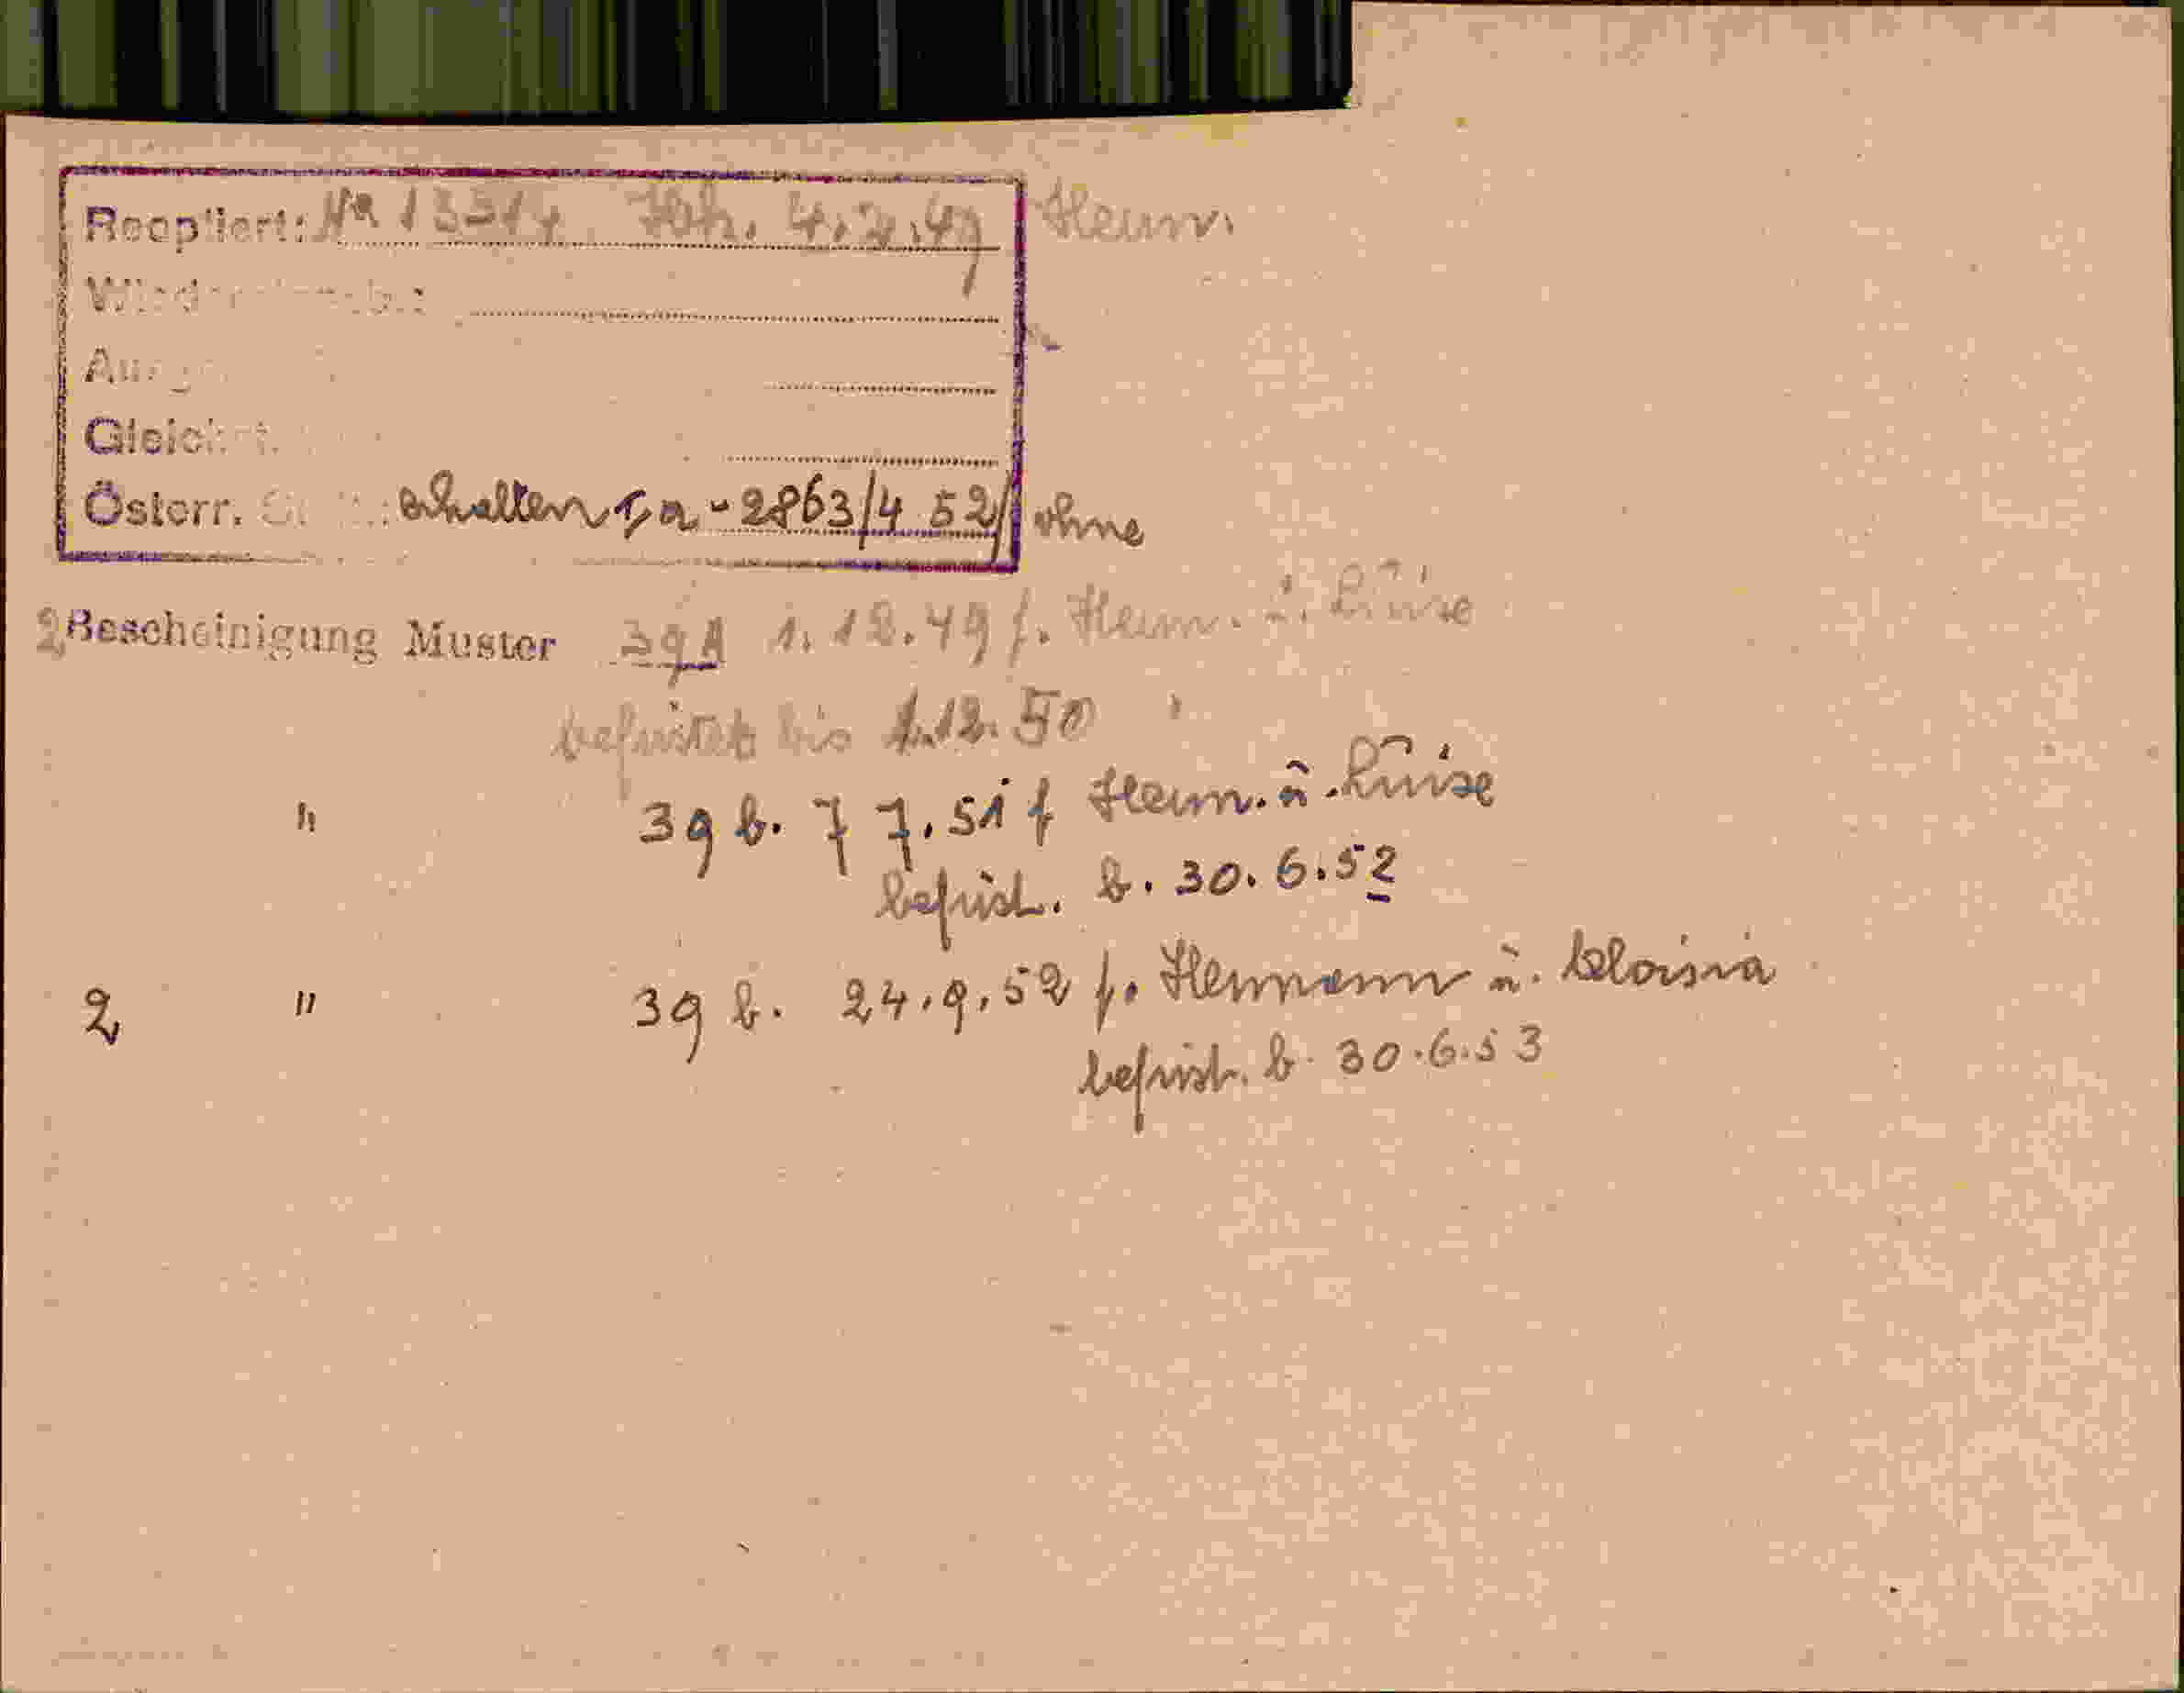 Reoptiert: Hermn.
Ausge
Gleichst.
Österr. erhalten Ia-2863/4 52/ ohne
2 Bescheinigung Muster 39A 1.12.49 f. Herm. u. Luise
befristet bis 1.12.50
" 39 b. 7 7.51 f Herm. u. Luise
befrist. b. 30.6.52
2 " 39 b. 24.9.52 f. Hermann u. Aloisia
befrist. b. 30.6.53